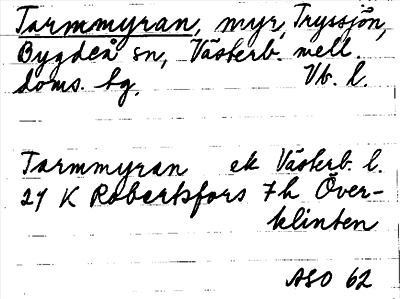 Tarmmyran, myr, Tryssjön,
Bygdeå sn, Västerb. mell.
doms. bg. Vb. l.
Tarmmyran ek Västerb. l.
21 K Robertsfors 7h Över-
klinten
ASO 62